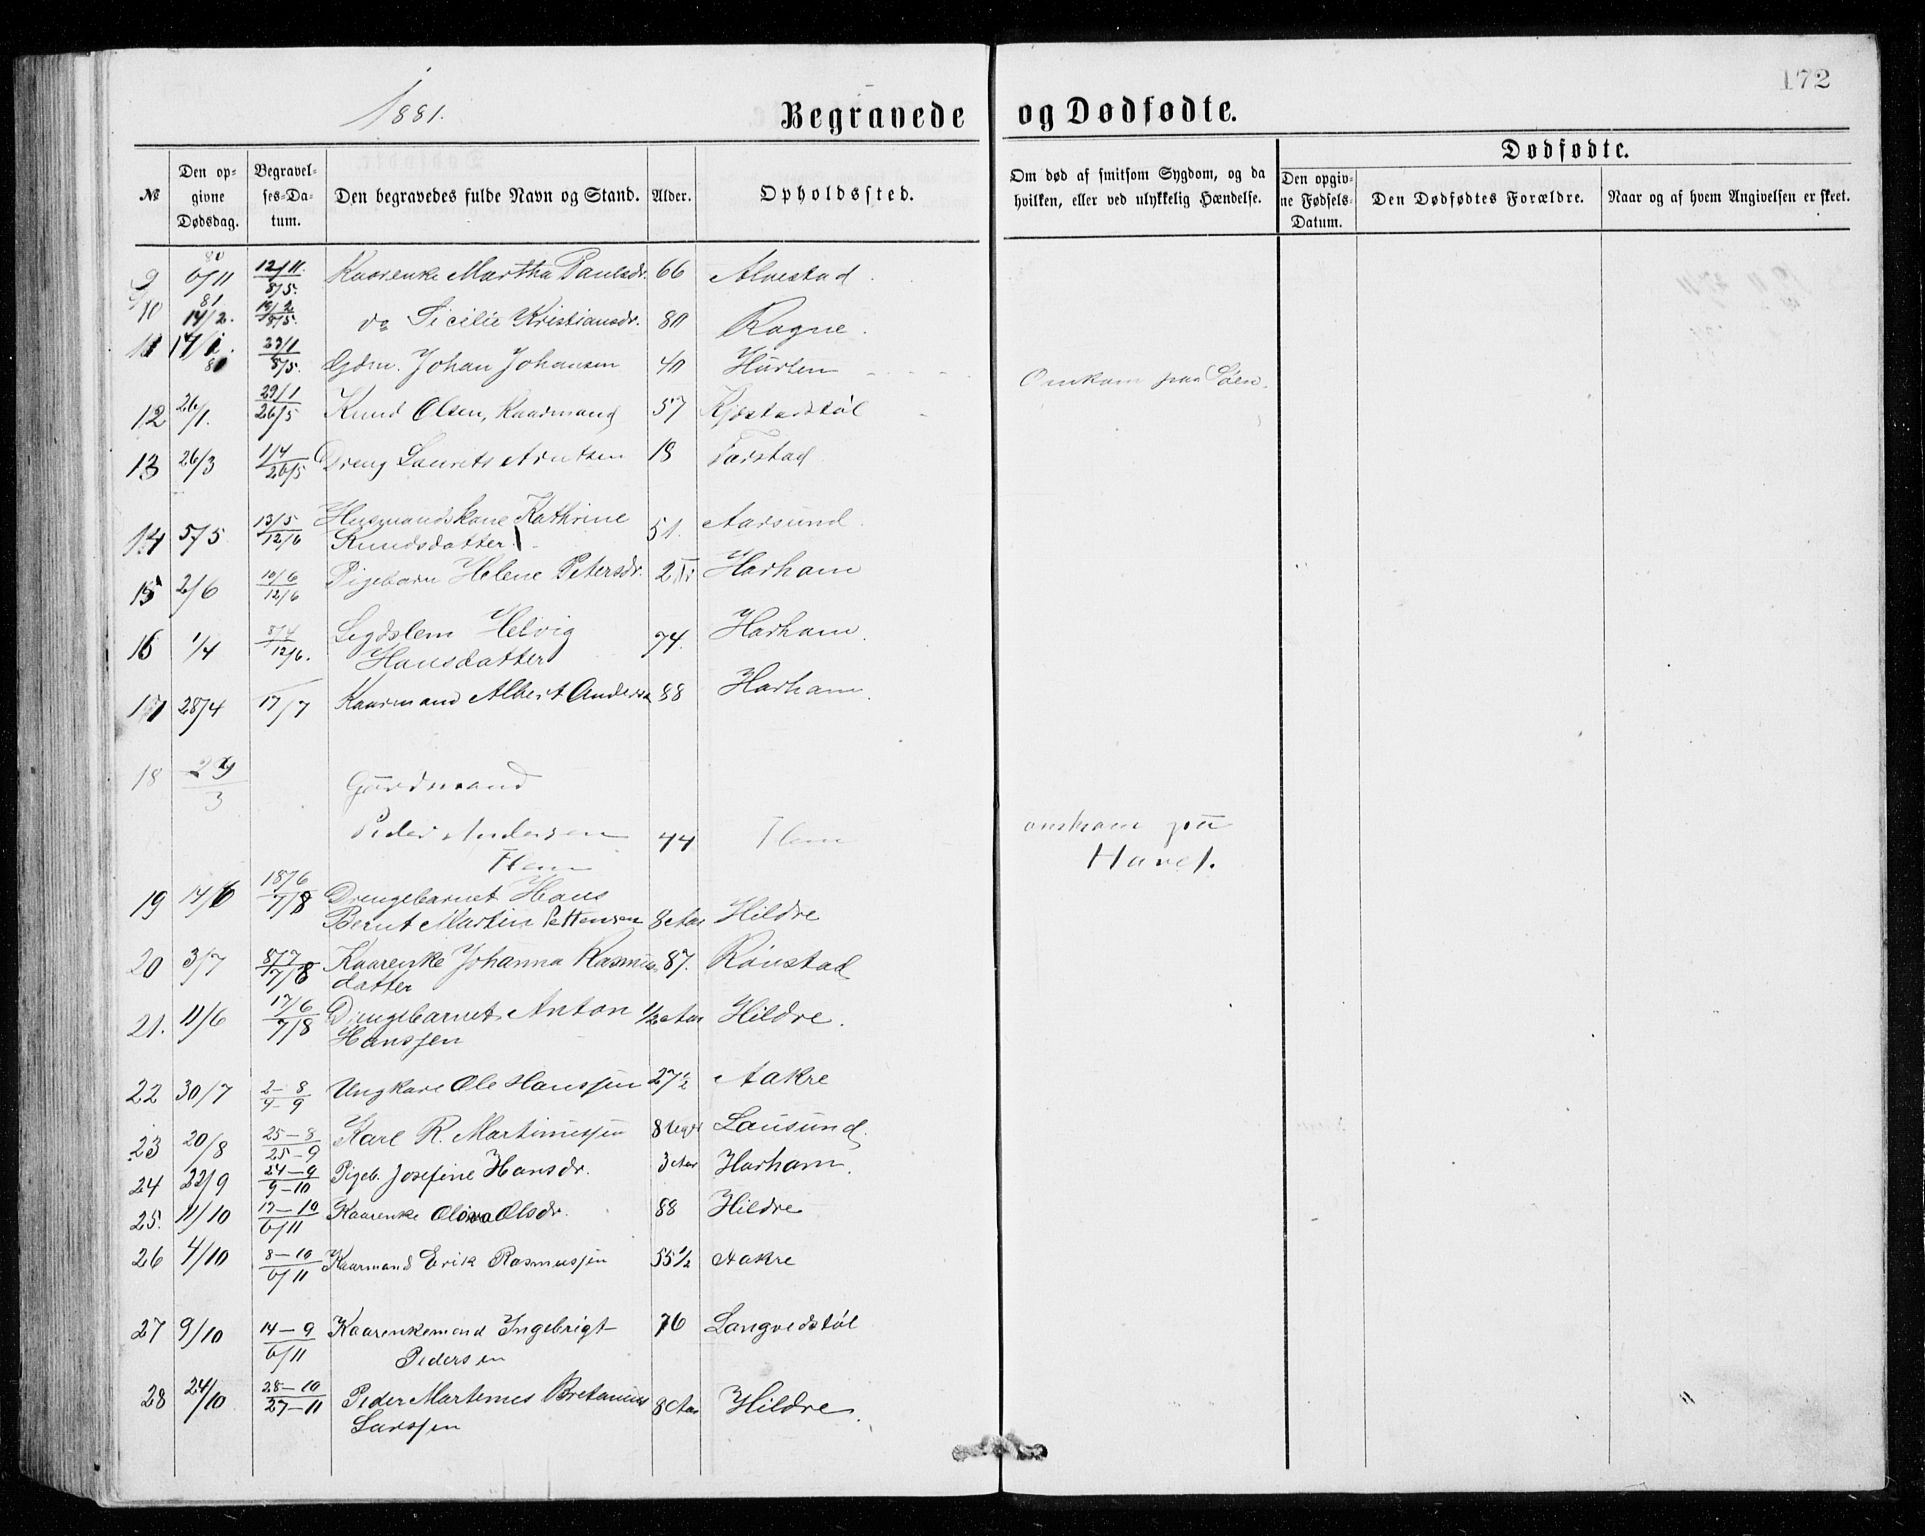 172
1881.
Begravede og Dødfødte.
№
Den opgivne Dødsdag.
Begravelses-Datum.
Den begravedes fulde Navn og Stand.
Alder.
Opholdssted.
Om død af smitsom Sygdom, og da hvilken, eller ved ulykkelig Hændelse.
Dødfødte.
Den opgivne Fødsels-Datum.
Den Dødfødtes Forældre.
Naar og af hvem Angivelsen er skeet.
9 6/11 80 12/11 8/5. Kaarenke Martha Paulsdr. 66 Alvestad
10 81 14/2. 8/5. do Sicilie Kristiansdr. 80 Rogne.
11 17/1. 23/1 8/5. Gdm. Johan Johansen 40 Hurlen Omkom paa Søen.
12 26/1. 29/1 26/5 Knud Olsen, Kaarmand 57 Kjøstadstøl
13 26/3 1/4 26/5 Dreng Laurits Arntsen 18 Farstad
14 5/5 13/5 12/6 Husmandskone Kathrine 51. Aarsund.
Knudsdatter
15 2/6 10/6 12/6 Pigebarn Helene Petersdr. 2 Harham
16 1/4 8/4 12/6. Legdslem Helvig 74. Harham.
Hansdatter
17 28/4 17/7 Kaarmand Albert Anders 88 Harham.
18 29/3 Gårdmand
Peder Andersen 44 Flem omkom på
Flem Havet.
19 14/6 18/6 7/8 Drengebarnet Hans
Bernt Martin Pettersen 8 Aar Hildre
20 3/7 8/7 7/8 Kaarenke Johanna Rasmus 87. Rønstad
datter
21. 11/6 17/6 7/8 Drengebarnet Anton 1/2 Aar Hildre.
Hanssen
22 30/7 2–8 4–9 Ungkarl Ole Hanssen 27 1/2 Aakre
23 20/8 25–8 25–9 Karl R. Martinussen 8 Uger Lausund.
24 22/9 24–9 9–10 Pigeb. Josefine Hansdr. 3 Aar Harham.
25. 11/10 17–10 6/11 Kaarenke Olsdr. 88 Hildre
26 4/10 8–10 6/11 Kaarmand Erik Rasmussen 55 1/2 Aakre
27 9/10 14–9 6/11 Kaarenkemand Ingebrigt 76 Longvedstøl
Pedersen
28 24/10 28–10 27–11 Peder Martinus Bretanius 8 Aar Hildre.
Larssen